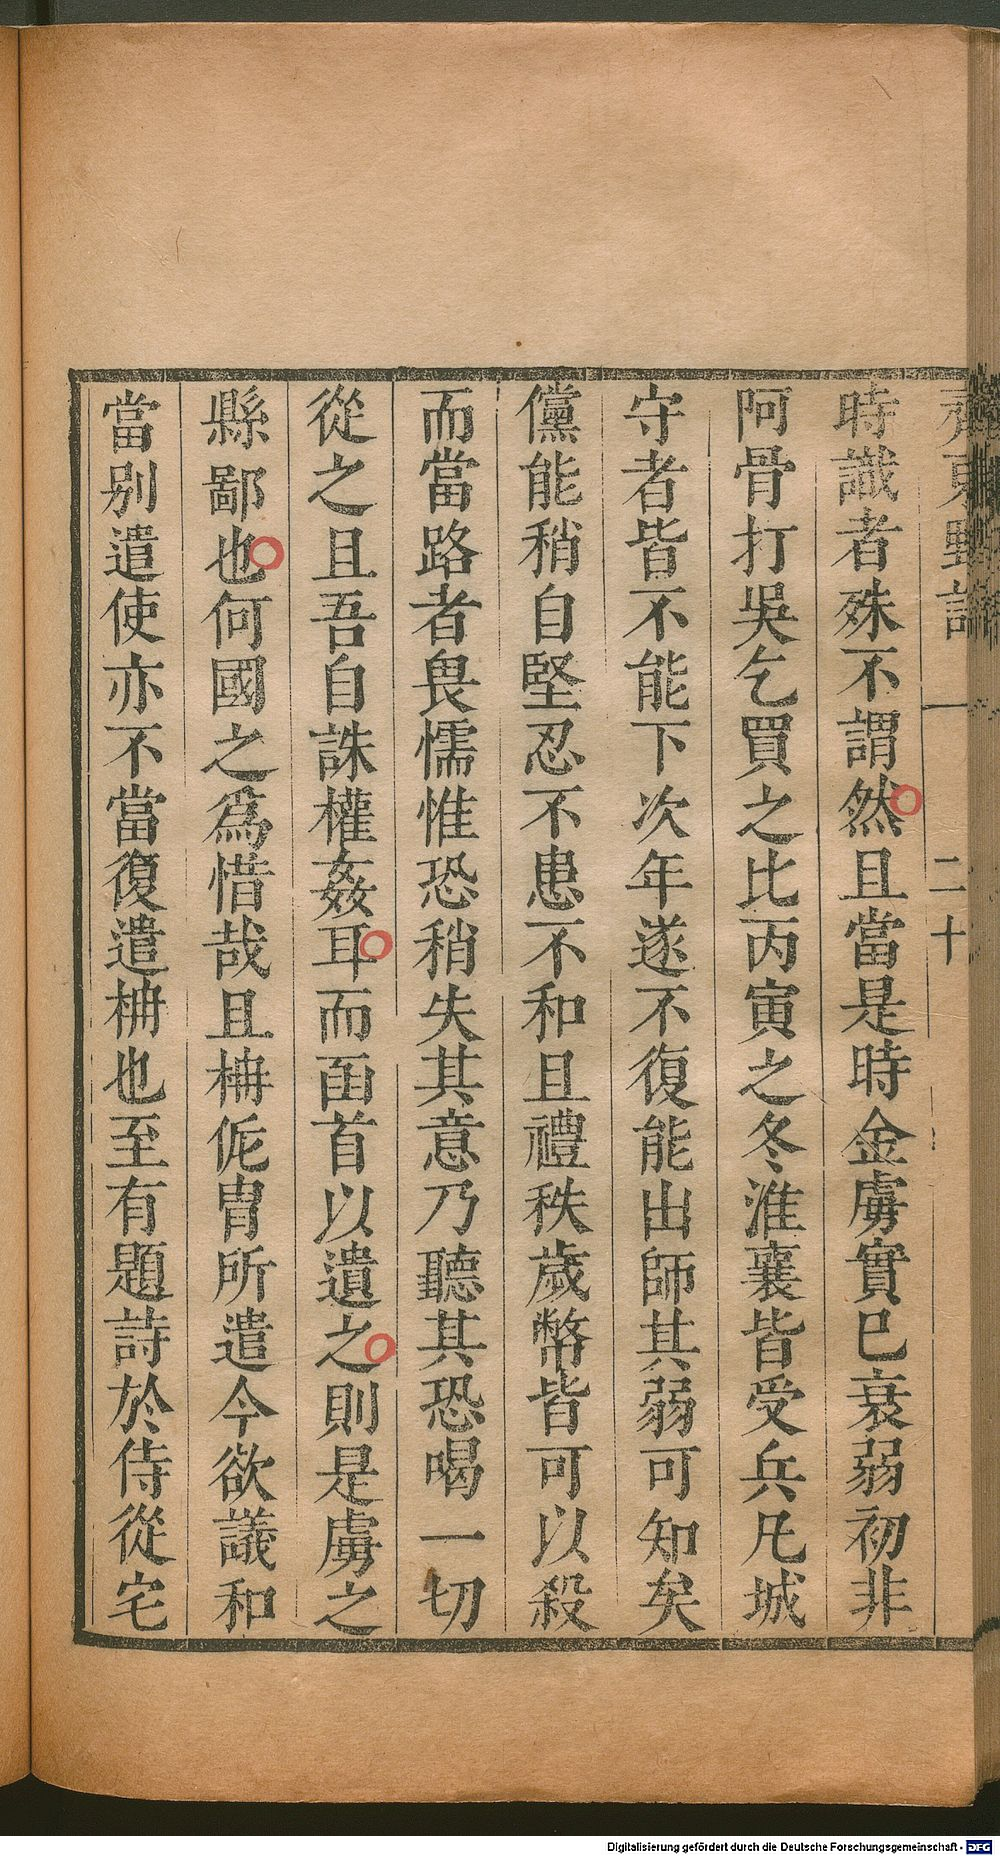 齊東野語
二十
時識者殊不謂然且當是時金虜實已衰弱初非
阿骨打吳乞買之比丙寅之冬淮襄皆受兵凡城
守者皆不能下次年遂不復能出師其弱可知矣
儻能稍自堅忍不患不和且禮秩歲幣皆可以殺
而當路者畏懦惟恐稍失其意乃聽其恐喝一切
從之且吾自誅權姦耳而函首以遺之則是虜之
縣鄙也何國之爲惜哉且柟侂冑所遣今欲議和
當別遣使亦不當復遣柟也至有題詩於侍從宅
Digitalisierung gefördert durch die Deutsche Forschungsgemeinschaft - DFG